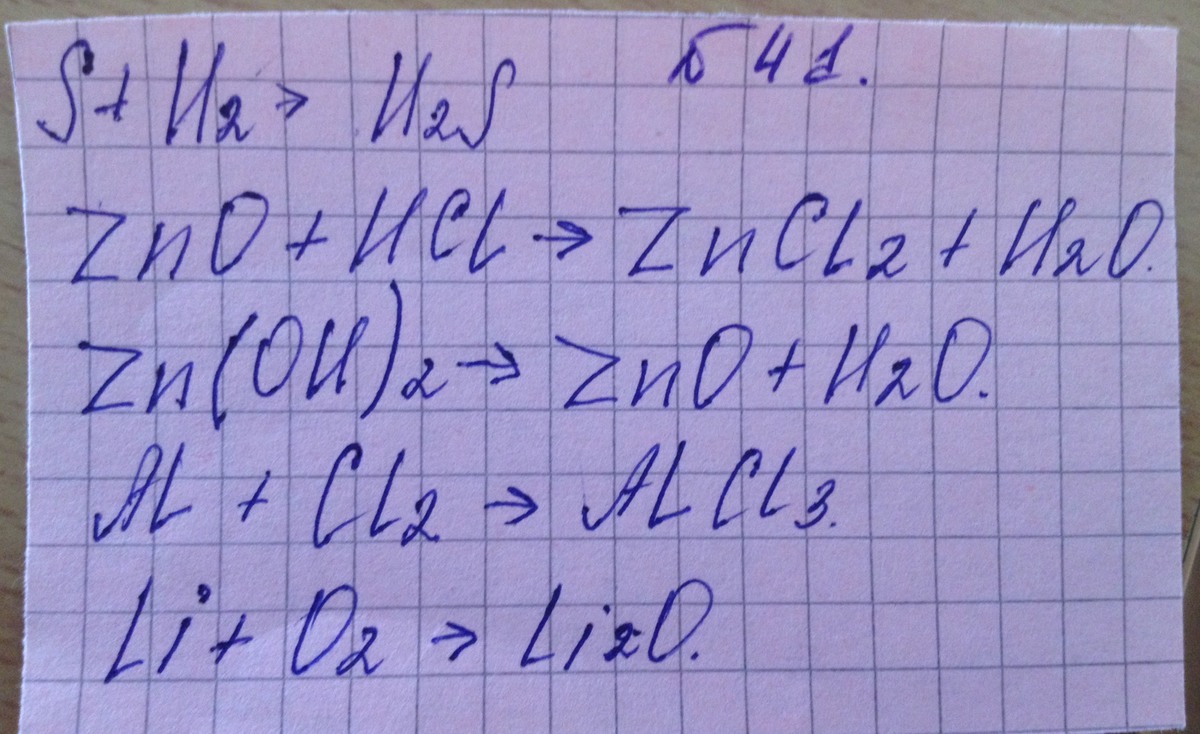 S + H₂ → H₂S Б 41.
ZnO + HCl → ZnCl₂ + H₂O.
Zn(OH)₂ → ZnO + H₂O.
Al + Cl₂ → AlCl₃.
Li + O₂ → Li₂O.